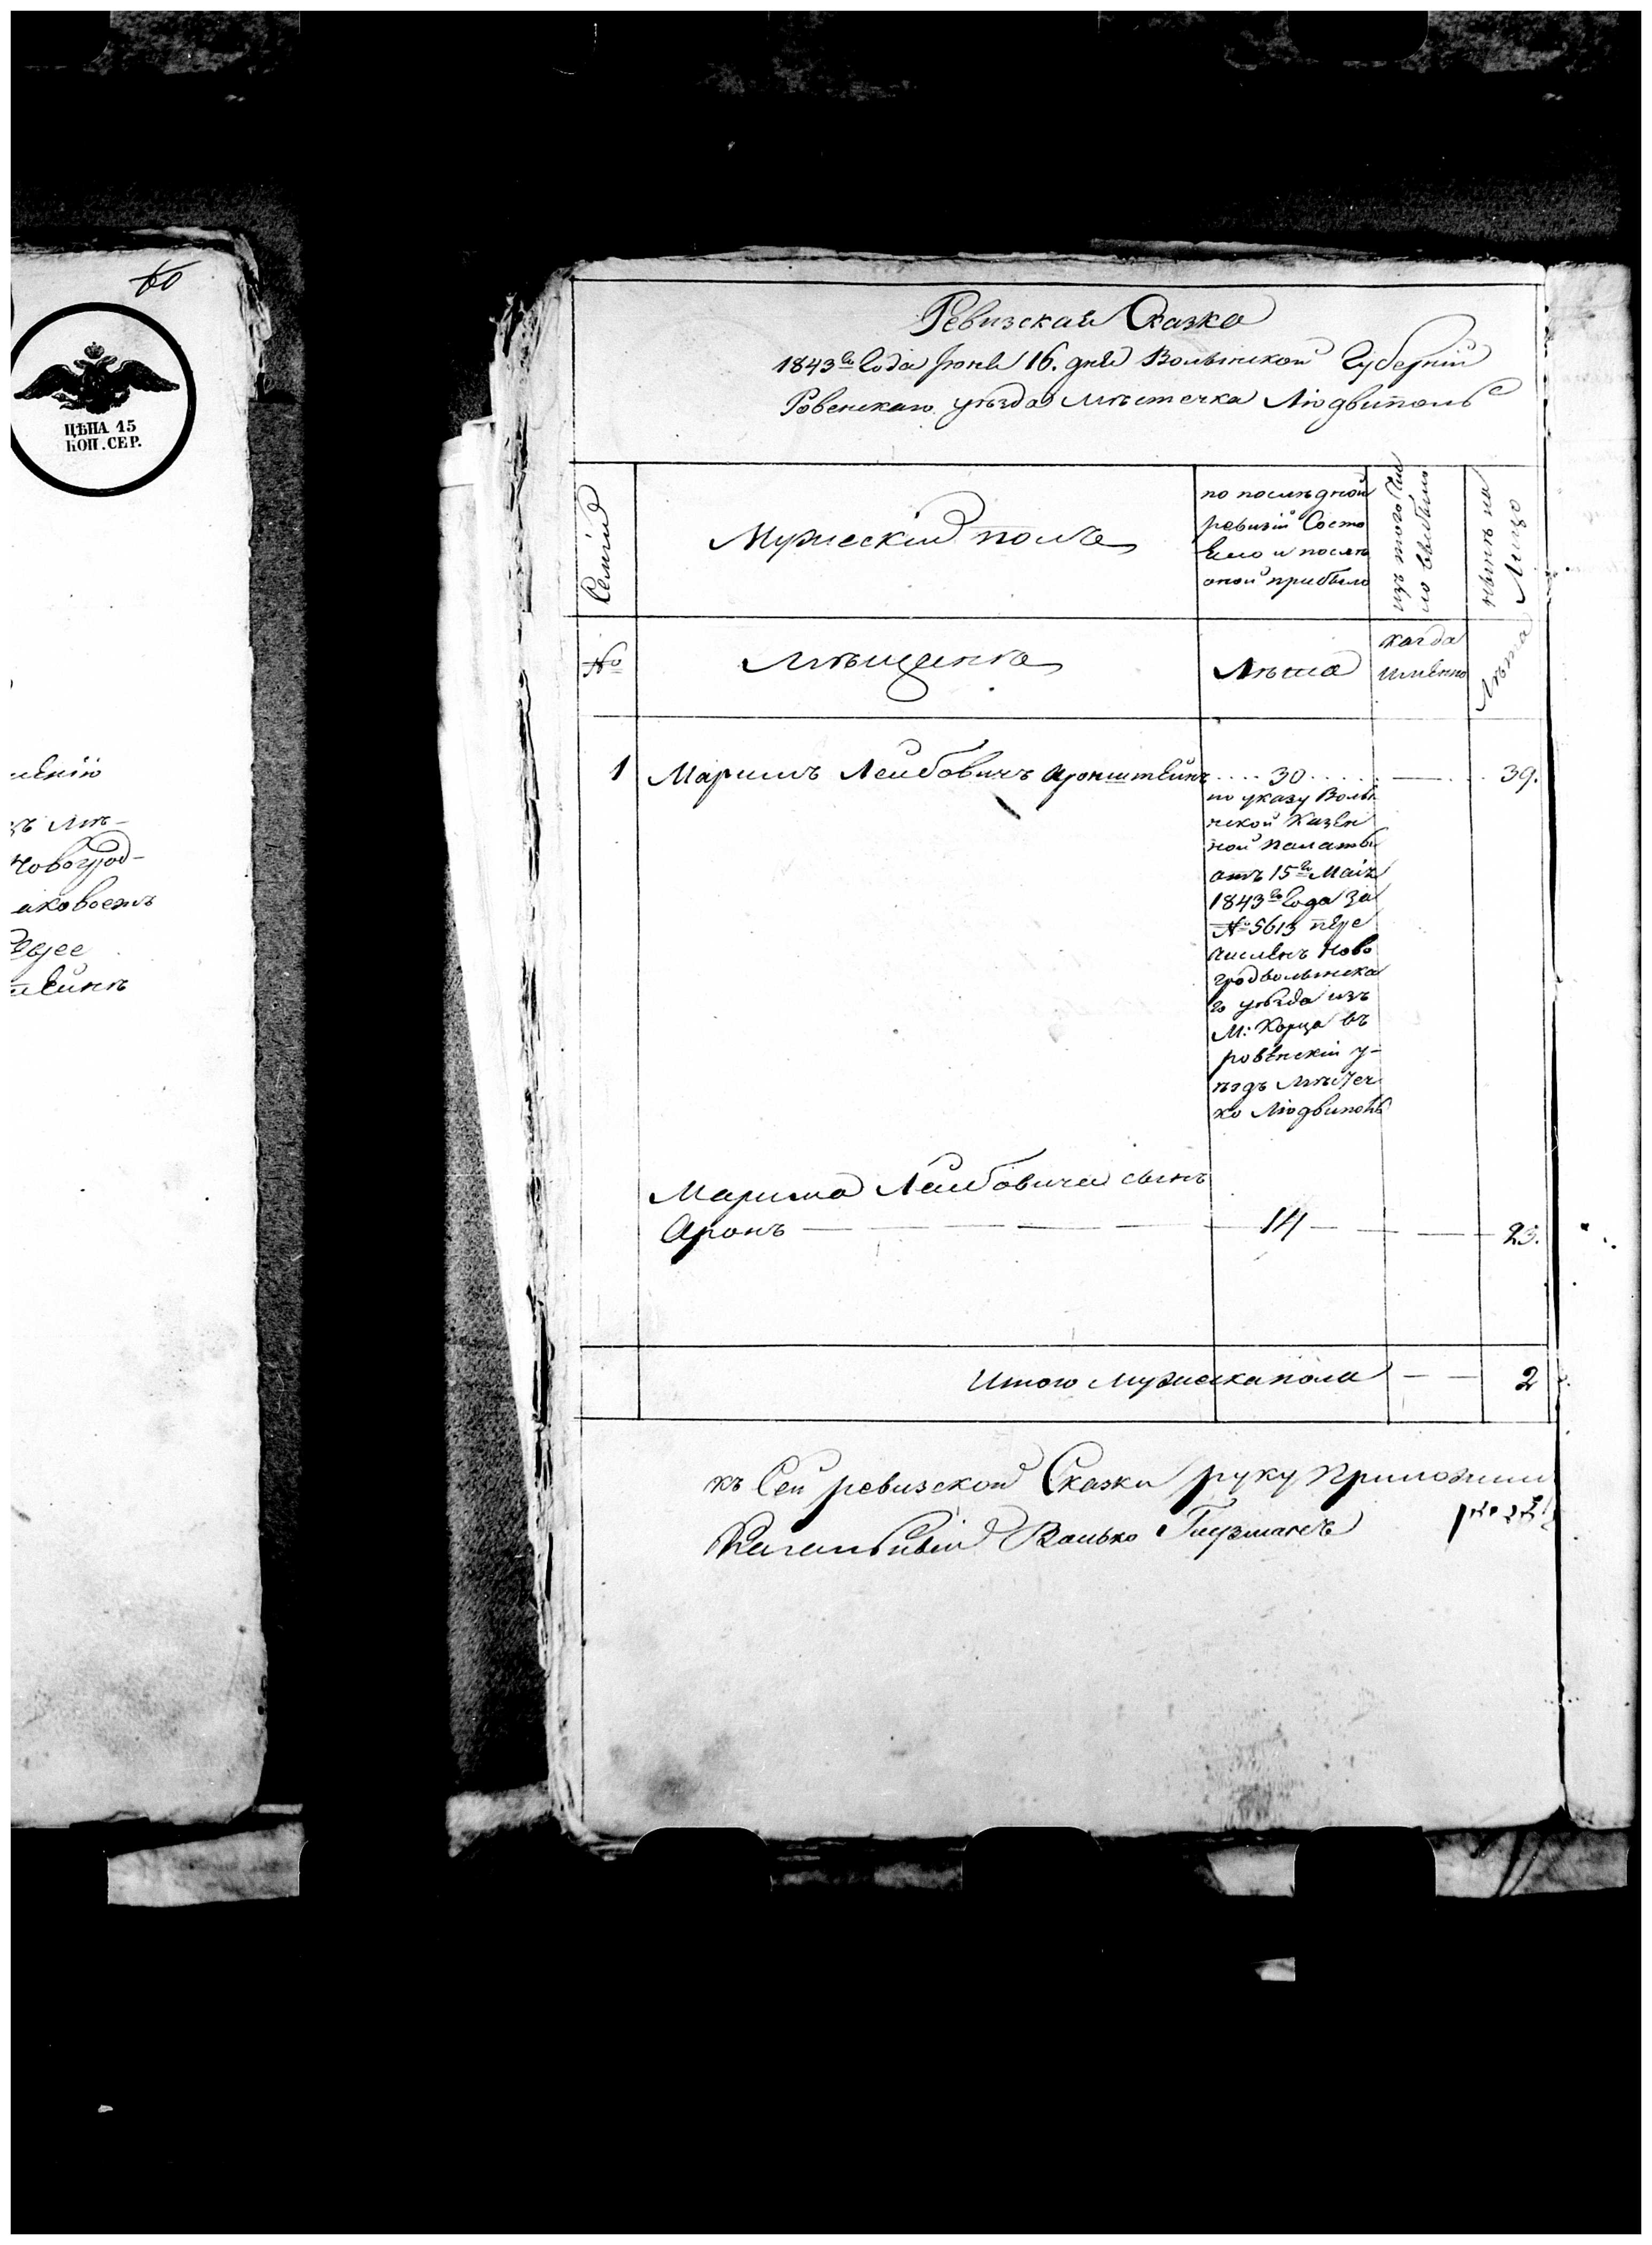 60
ЦѢНА 15
КОП. СЕР.
Ревизская Сказка
1843го Года Іюня 16. дня Волынской Губерніи
Ровенскаго уѣзда мѣстечка Людвиполь
Семіи
Мужескій полъ
по послѣдной
ревизіи Состо
Яло и послѣ
оной прибыло
изъ того Чис
ло выбыло
нынѣ на
Лицо
№
Мѣщанѣ
Лѣта
когда
именно
Лѣта
1 Маримъ Лейбовичъ Аронштейнъ 30 39.
по указу Волы
нской Казен
ной палаты
отъ 15го Маія
1843го Года За
№ 5613 пере
численъ Ново
градволынска
го уѣзда изъ
М: Корца въ
ровенскій у-
ѣздъ мѣстеч
ко Людвиполь
Марима Лейбовича сынъ
Аронъ 14 23.
Итого мужеска пола 2
къ Сей ревизской Сказки руку приложили
Кагальный Валько